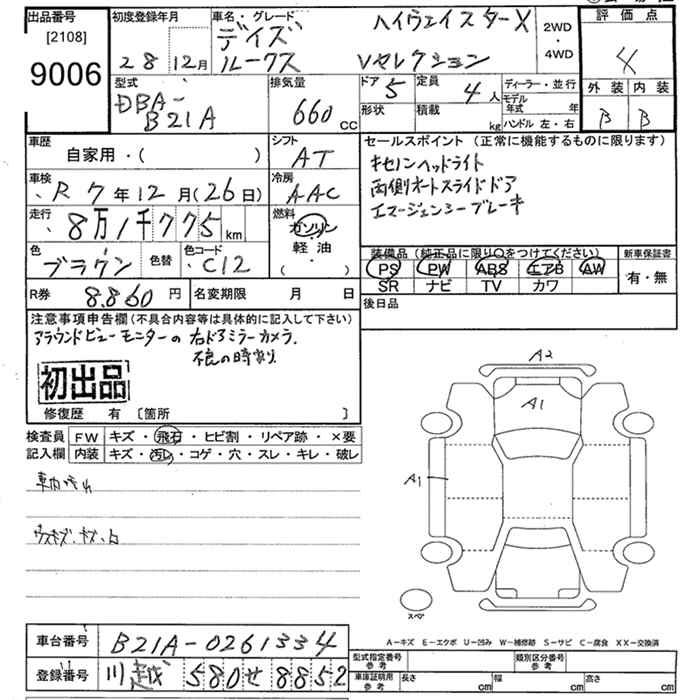 出品番号
[2108]
9006
初度登録年月
28 12月
車名・グレード
デイズ
ルークス
ハイウェイスターX
Vセレクション
2WD
・
4WD
評価点
4
外装 内装
B B
型式
DBA-
B21A
排気量
660 CC
ドア 5
定員 4人
形状
積載 kg
ディーラー・並行
モデル年式 年
ハンドル 左・右
車歴
自家用・( )
シフト
AT
車検
R7年12月(26日)
冷房
AAC
走行
8万1千775km
燃料
ガソリン
軽油
( ・ )
色
ブラウン
色替
色コード
C12
R券 8,860円
名変期限 月 日
セールスポイント(正常に機能するものに限ります)
キセノンヘッドライト
両側オートスライドドア
エマージェンシーブレーキ
装備品(純正品に限り○をつけてください)
PS PW ABS エアB AW
SR ナビ TV カワ
新車保証書
有・無
後日品
注意事項申告欄(不具合内容等は具体的に記入して下さい)
アラウンドビューモニターの右ドアミラーカメラ
不良の時有り
初出品
修復歴 有 [箇所 ]
検査員 FW キズ・飛石・ヒビ割・リペア跡・×要
記入欄 内装 キズ・汚レ・コゲ・穴・スレ・キレ・破レ
車内汚れ
ウスキズ・キズ・凹
A2
A1
A1
スペア
A-キズ E-エクボ U-凹み W-補修跡 S-サビ C-腐食 XX-交換済
車台番号 B21A-0261334
登録番号 川越 580 せ 8852
型式指定番号 参考
類別区分番号 参考
車庫証明用 参考
長さ cm
幅 cm
高さ cm